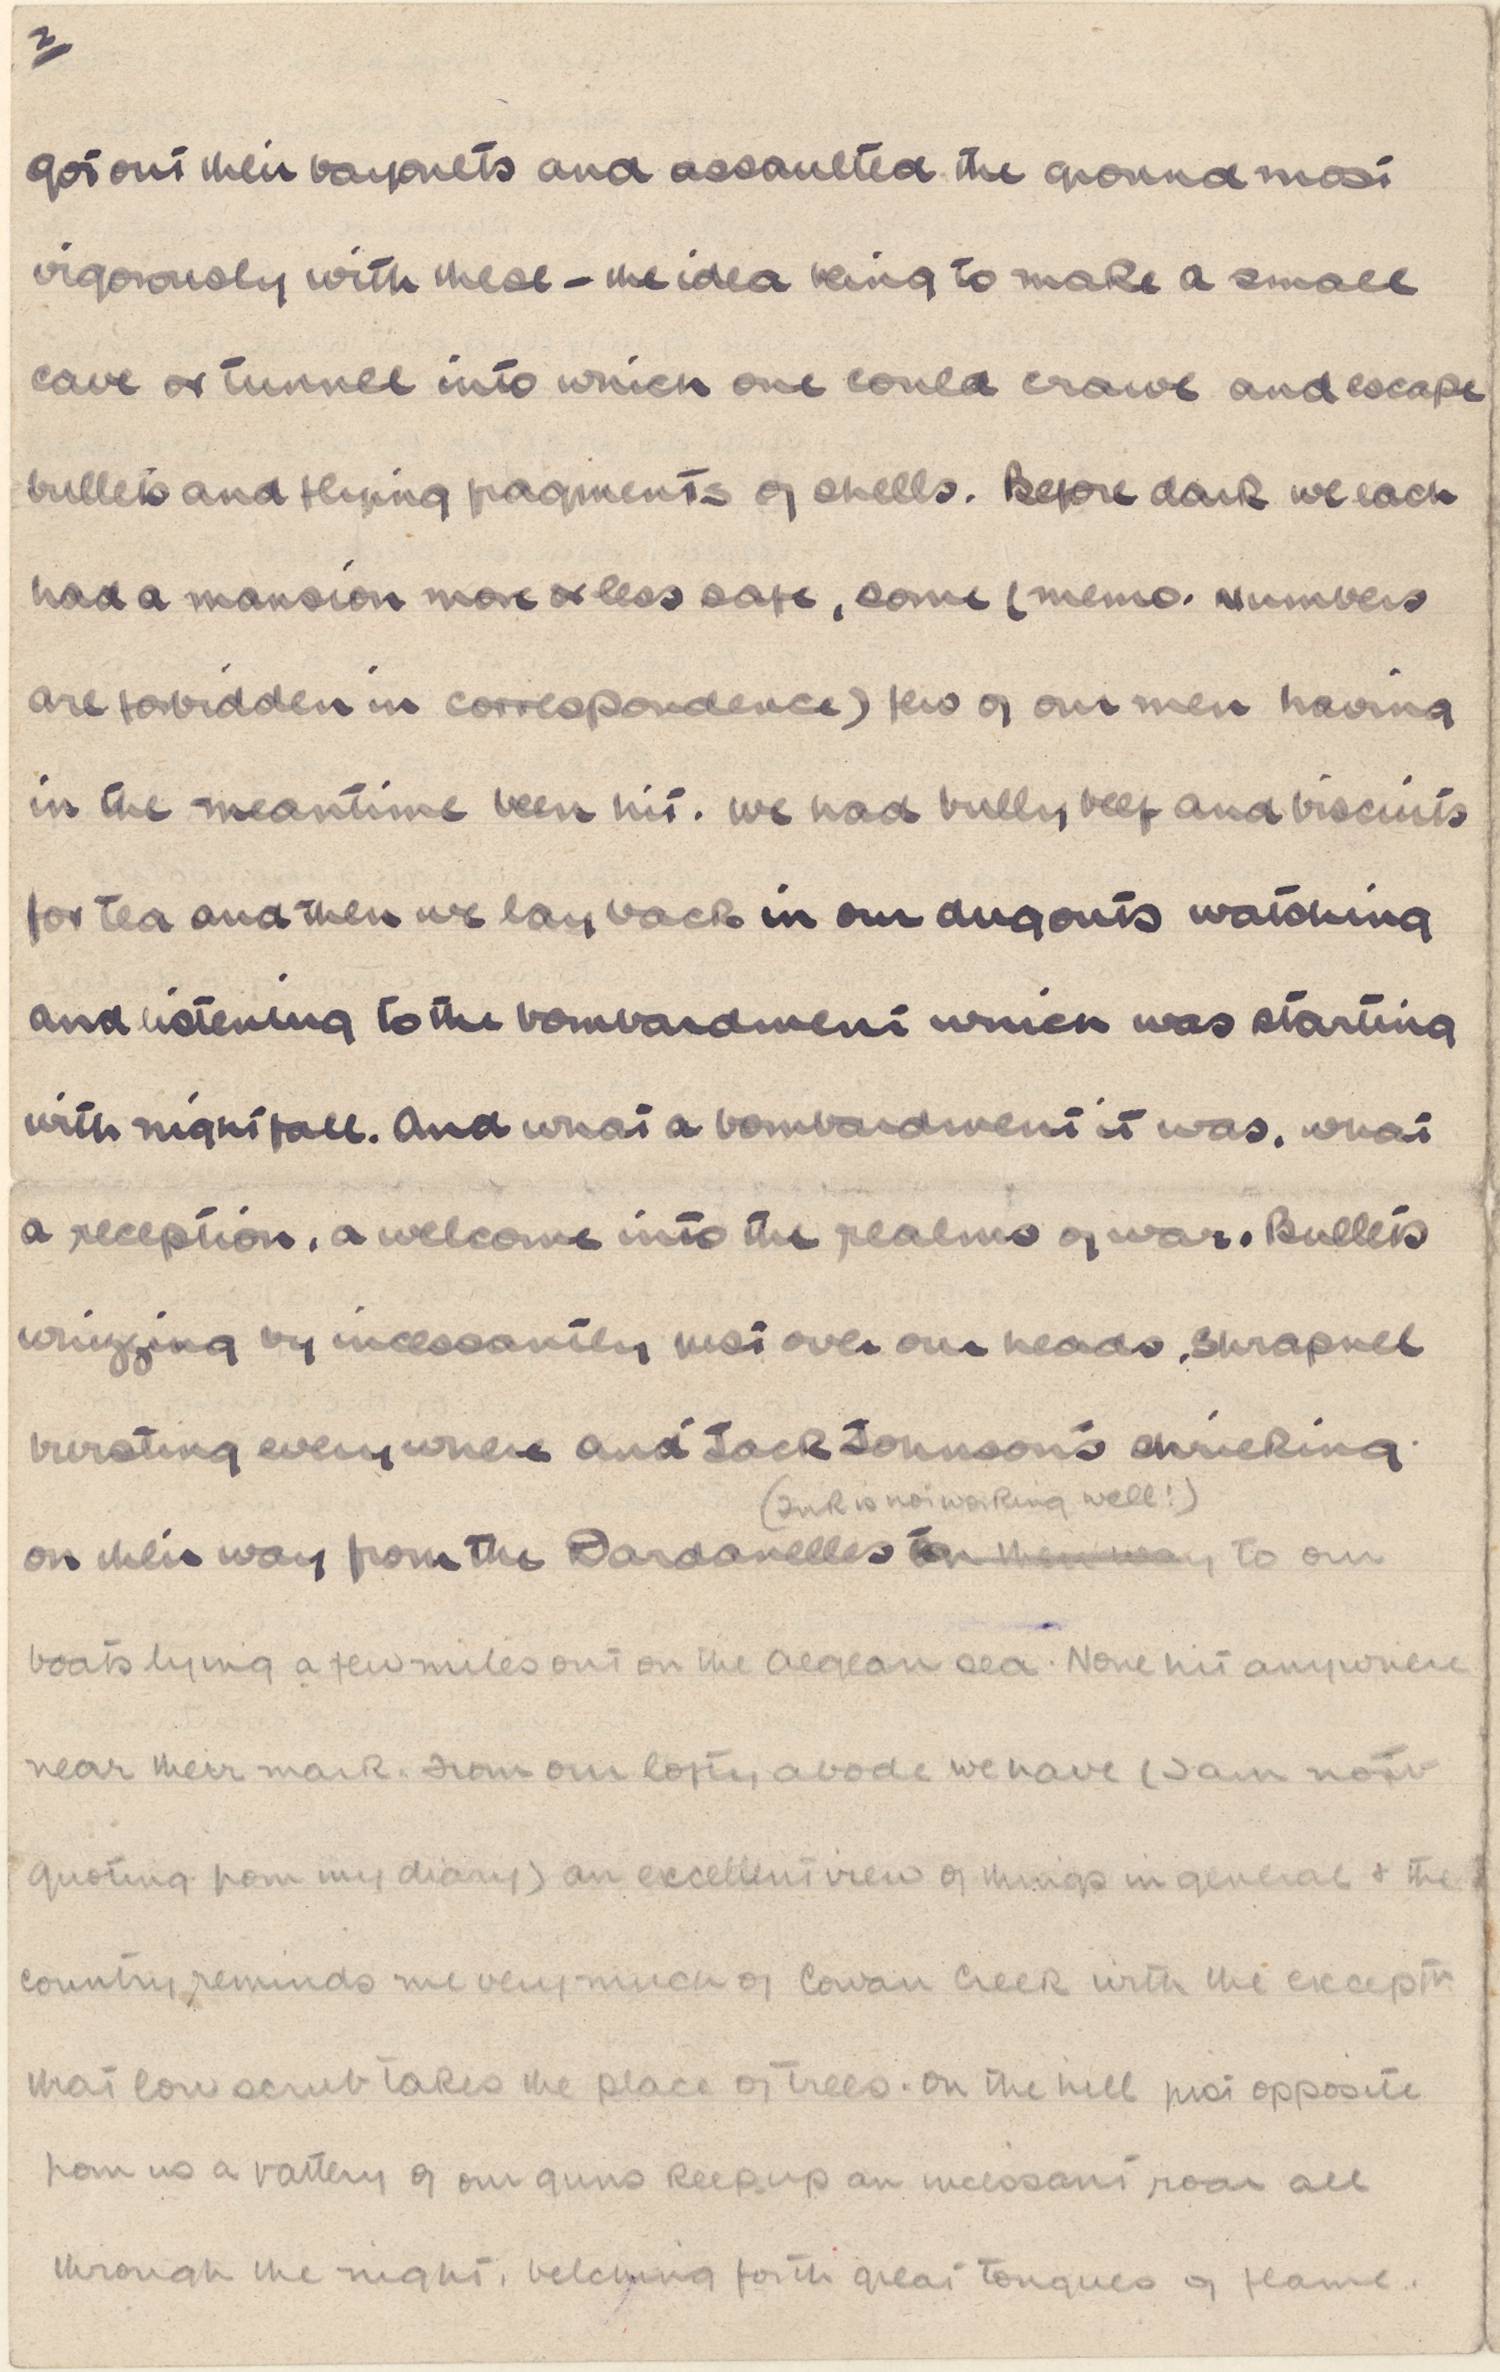 2
got out their bayonets and assaulted the ground most
vigorously with these - the idea being to make a small
cave or tunnel into which one could crawl and escape
bullets and flying fragments of shells. Before dark we each
had a mansion more or less safe, some (memo. Numbers
are forbidden in correspondence) few of our men having
in the meantime been hit. We had bully beef and biscuits
for tea and then we lay back in our dugouts watching
and listening to the bombardment which was starting
with nightfall. And what a bombardment it was, what
a reception, a welcome into the realms of war. Bullets
whizzing by incessantly just over our heads, shrapnel
bursting everywhere and Jack Johnson's shrieking
(Ink is not working well!)
on their way from the Dardanelles on their way to our
boats lying a few miles out on the Aegean sea. None hit anywhere
near their mark. From our lofty abode we have (I am now
quoting from my diary) an excellent view of things in general & the
country reminds me very much of Cowan Creek with the exceptn
that low scrub takes the place of trees. On the hill just opposite
from us a battery of our guns keeps up an incessant roar all
through the night, belching forth great tongues of flame.